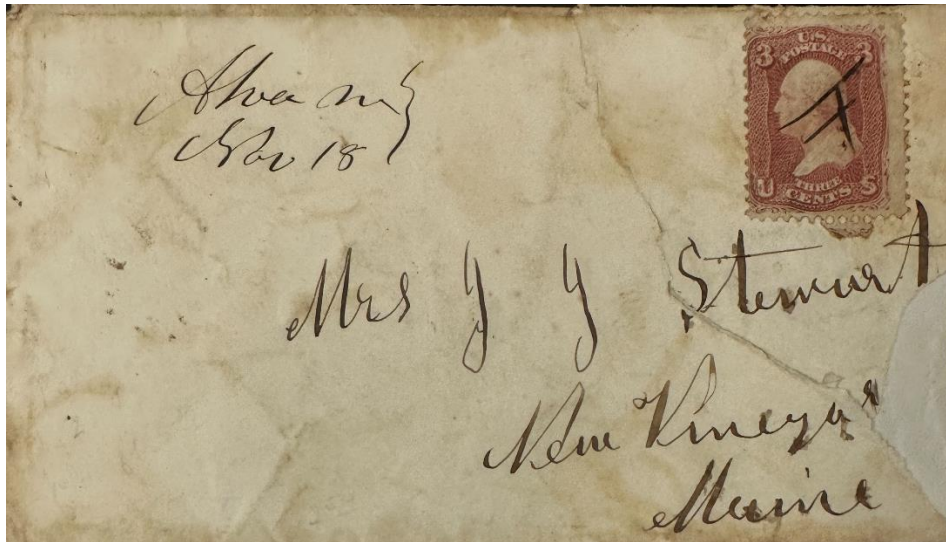 Alva Me
Nov 18
3 U.S. 3
POSTAGE
U THREE S
CENTS
Mrs J J Stewart
New Vineyar
Maine